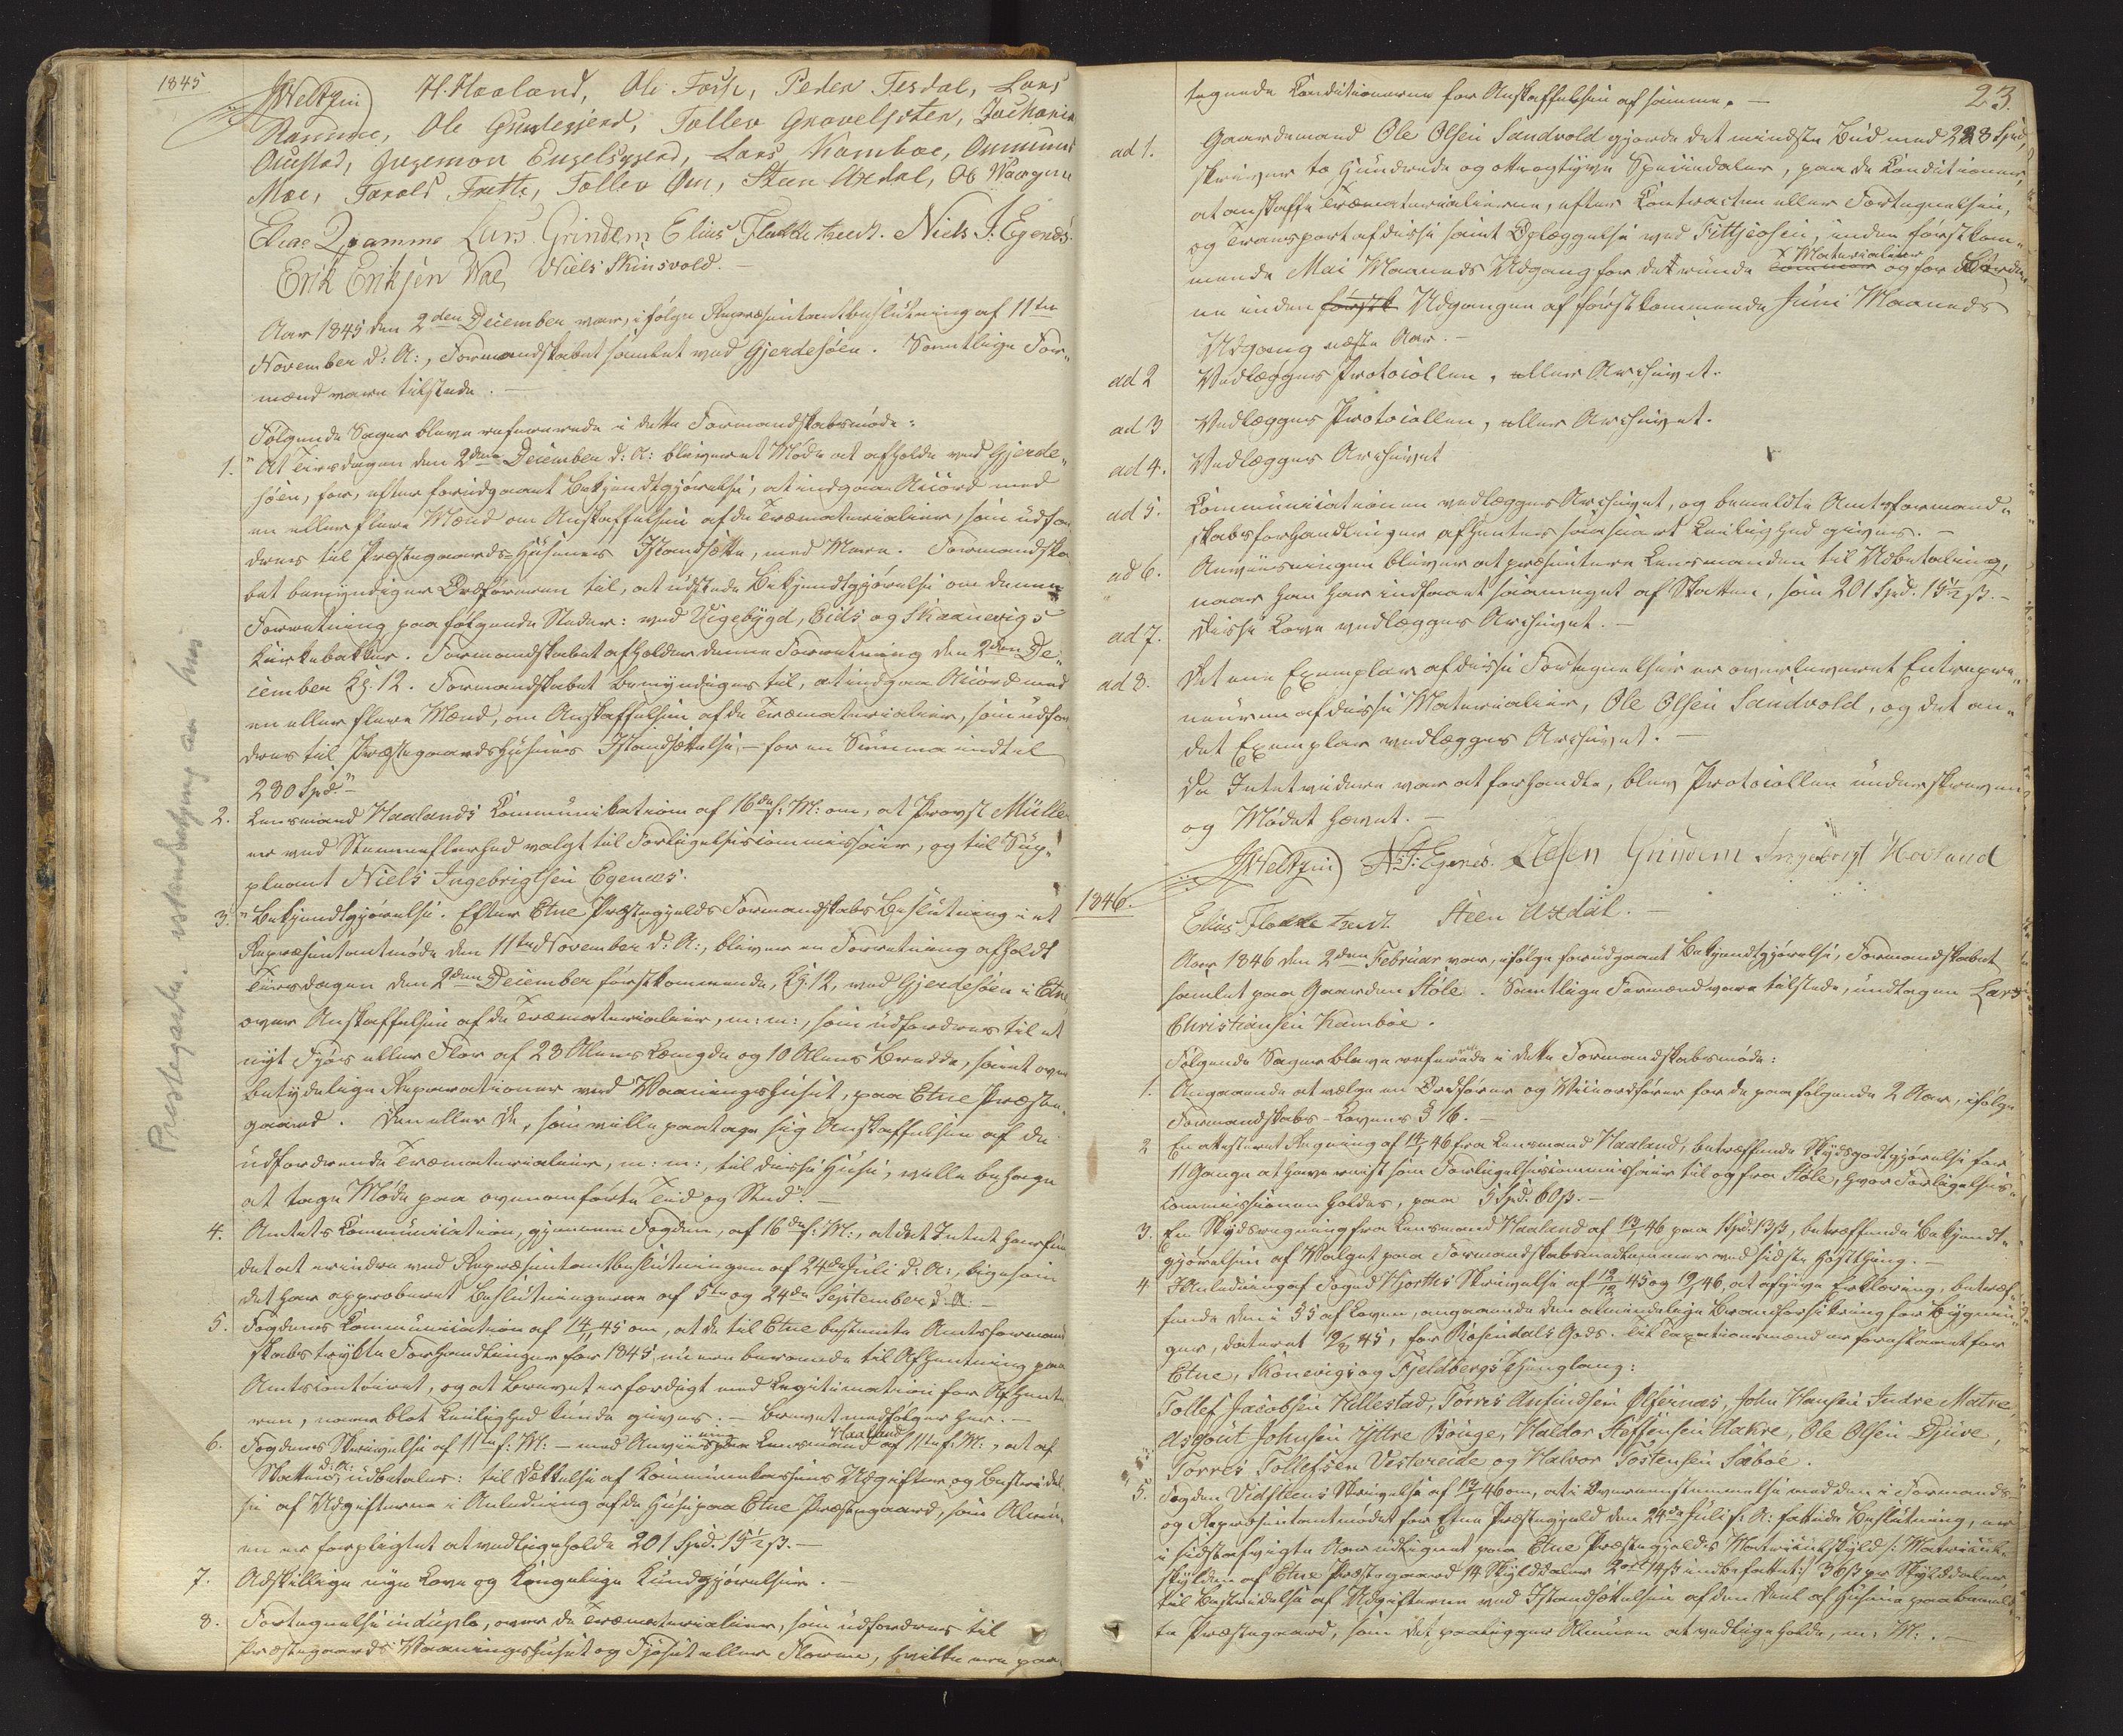 1845
JWeltzin H. Haaland, Ole Fosse, Peder Tesdal, Lars
Ramme, Ole Grindegjerd, Tollev Gravelsæter, Zacharias
Austad, Ingemon Engelsgjerd, Lars Kamboe, Ommund
Moe, Farold Frette, Tollev Øen, Steen Axdal, Ob Vaagen
Elias Qvamme Lars Grindem Elius Fladkehust. Niels I. Egenæs.
Erik Eriksen Vae, Niels Skinsvold. —
Aar 1845 den 2den December var, ifølge Repræsentantbeslutning af 11te
November d: A:, Formandskabet samlet ved Gjerdesøen. Samtlige For-
mænd vare tilstede. —
Følgende Sager bleve refererede i dette Formandskabsmøde:
1. "At Tirsdagen den 2den December d: A: bliver et Møde at afholde ved Gjerde-
søen, for, efter forudgaaet Bekjendtgjørelse, at indgaae Accord med
en eller flere Mænd om Anskaffelsen af de Træmaterialier, som udfor-
dres til Præstegaards-Husenes Istandsætte, med Mere. Formandska-
bet bemyndiger Ordføreren til, at udstede Bekjendtgjørelse om denne
Forretning paa følgende Steder: ved Vigebygd, Eids og Skaanevigs
Kirkebakker. Formandskabet afholder denne Forretning den 2den De-
cember Kl. 12. Formandskabet bemyndiges til, at indgaa Accord med
en eller flere Mænd, om Anskaffelsen af de Træmaterialier, som udfor-
dres til Præstegaardshusenes Istandsættelse, — for en Summa indtil
230 Spd."
2. Lensmand Haalands Communikation af 16de f: M: om, at Provst Müller
er ved Stemmeflerhed valgt til Forligelsescommissair, og til Sup-
pleant Niels Ingebrigtsen Egenæs.
3. "Bekjendtgjørelse. Efter Etne Præstegjelds Formandskabs Beslutning i et
Repræsentantmøde den 11te November d: A:, bliver en Forretning afholdt
Tirsdagen den 2den December førstkommende, Kl. 12, ved Gjerdesøen i Etne,
over Anskaffelsen af de Træmaterialier, m: m:, som udfordres til et
nyt Fjøs eller Flor af 23 Alens Længde og 10 Alens Bredde, samt over
betydelige Reparationer ved Vaaningshuset, paa Etne Præste-
gaard. Den eller De, som ville paatage sig Anskaffelsen af de
udfordrende Træmaterialier, m: m:, til disse Huse, ville behage
at tage Møde paa ovenanførte Tid og Sted". —
4. Amtets Communication, gjennem Fogden, af 16de f: M:, at det Intet har fun-
det at erindre ved Repræsentantbeslutningen af 24de Juli d: A:, ligesom
det har approberet Beslutningerne af 5te og 24de September d: A: —
5. Fogdens Communication af 14/11 45 om, at de til Etne bestemte Amtsformand-
skabs trykte Forhandlinger for 1845, nu ere beroende til Afhentning paa
Amtscontoiret, og at Brevet er færdigt med Legitimation for Afhente-
ren, naar blot Leilighed kunde gives. — Brevet medfølger her. —
6. Fogdens Skrivelse af 11te f: M: — med Anviisning paa Lensmand Haaland af 11te f: M:, at af
Skatten d: A: udbetales: til Dækkelse af Kommunekassens Udgifter og Bestridel-
se af Udgifterne i Anledning af de Huse paa Etne Præstegaard, som Almu-
en er forpligtet at vedligeholde 201 Spd. 15½ ß. —
7. Adskillige nye Love og Kongelige Kundgjørelser. —
8. Fortegnelse in duplo, over de Træmaterialier, som udfordres til
Præstegaards Vaaningshuset og Fjøset eller Floren, hvilke ere paa-
Prestegarden istandsetjing av hus
23.
tegnede Conditionerne for Anskaffelsen af samme. —
ad 1. Gaardmand Ole Olsen Sandvold gjorde det mindste Bud med 228 Spd,
skriver to Hundrede og otteogtyve Speciedaler, paa de Conditioner,
at anskaffe Træmaterialierne, efter Contracten eller Fortegnelsen,
og Transport af disse samt Oplæggelse ved Fittjeosen, inden førstkom-
mende Mai Maaneds Udgang for det runde Materialier og for Bordene
ne inden først Udgangen af førstkommende Juni Maaneds
Udgang næste Aar. —
ad 2 Vedlægges Protocollen, eller Archivet.
ad 3 Vedlægges Protocollen, eller Archivet.
ad 4. Vedlægges Archivet
ad 5. Communicationen vedlægges Archivet, og bemeldte Amtsformand-
skabsforhandlinger afhentes saasnart Leilighed gives. —
ad 6. Anviisningen bliver at præsentere Lensmanden til Udbetaling,
naar han har indfaaet saameget af Skatten, som 201 Spd. 15½ ß. —
ad 7. Disse Love vedlægges Archivet. —
ad 8. Det ene Exemplar af disse Fortegnelser er overleveret Entrepre-
neuren af disse Materialier, Ole Olsen Sandvold, og det an-
det Exemplar vedlægges Archivet. —
Da Intet videre var at forhandle, blev Protocollen underskreven
og Mødet hævet. —
JWeltzin N. I. Egenæs. LLesen Grindem Ingebrigt Hovland
1846.
Elius Fladkehust Steen Axdal. —
Aar 1846 den 2den Februar var, ifølge forudgaaet Bekjendtgjørelse, Formandskabet
samlet paa Gaarden Støle. Samtlige Formænd vare tilstede, undtagen Lars
Christiansen Kamboe.
Følgende Sager bleve refererede i dette Formandskabsmøde:
1. Angaaende at vælge en Ordfører og Viceordfører for de paafølgende 2 Aar, ifølge
Formandskabs-Lovens § 16. —
2 En attesteret Regning af 14/1 46 fra Lensmand Haaland, betræffende Skydsgodtgjørelse for
11 Gange at have reist som Forligelsescommissair til og fra Støle, hvor Forligelses-
commissionen holdes, paa 5 Spd. 60 ß. —
3. En Skydsregning fra Lensmand Haaland af 13/1 46 paa 1 Spd 13 ß, betræffende Bekjendt-
gjørelsen af Valget paa Formandskabsmedlemmer ved sidste Høstthing. —
4 I Anledning af Foged Hjorths Skrivelse af 19/12 45 og 19/1 46, at afgive Erklæring, betræf-
fende den i § 5 af Loven, angaaende den almindelige Brandforsikring for Bygnin-
ger, dateret 19/8 45, for Rosendals Gods. Til Taxationsmænd er foreslaaet for
Etne, Skonevigs og Fjeldbergs Thinglaug:
Tollef Jacobsen Hillestad, Torres Anfindsen Ølfernæs, John Hansen Indre Matre,
Asgout Johnsen Yttre Bouge, Haldor Steffensen Aakre, Ole Olsen Djuve,
Torres Tollefsen Vestreide og Halvor Tostensen Sæbøe.
5. Fogden Vidsteens Skrivelse af 13/1 46 om, at i Overeensstemmelse med den i Formands-
og Repræsentantmødet for Etne Præstegjeld den 24de Juli f: A: fattede Beslutning, er
i sidstafvigte Aar udlignet paa Etne Præstegjelds Matriculskyld /: Matricul-
skylden af Etne Præstegaard 14 Skylddaler 2 ort 14 ß indbefattet:/ 36 ß pr Skylddaler
til Bestridelse af Udgifterne ved Istandsættelsen af den Deel af Husene paa bemeld-
te Præstegaard, som det paaligger Almuen at vedligeholde, m. M: . —